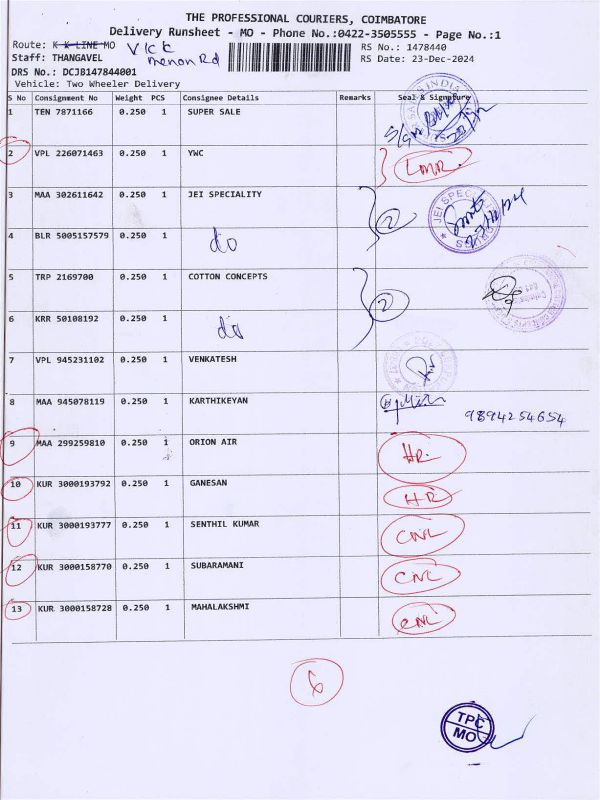 THE PROFESSIONAL COURIERS, COIMBATORE
Delivery Runsheet - MO - Phone No.:0422-3505555 - Page No.:1
Route: K K LINE MO VKK menon Rd
RS No.: 1478440
Staff: THANGAVEL
RS Date: 23-Dec-2024
DRS No.: DCJB147844001
Vehicle: Two Wheeler Delivery
S No Consignment No Weight PCS Consignee Details Remarks Seal & Signature
1 TEN 7871166 0.250 1 SUPER SALE
2 VPL 226071463 0.250 1 YWC
3 MAA 302611642 0.250 1 JEI SPECIALITY 2
4 BLR 5005157579 0.250 1 do
5 TRP 2169700 0.250 1 COTTON CONCEPTS 2
6 KRR 50108192 0.250 1 do
7 VPL 945231102 0.250 1 VENKATESH
8 MAA 945078119 0.250 1 KARTHIKEYAN 9894254654
9 MAA 299259810 0.250 1 ORION AIR HR.
10 KUR 3000193792 0.250 1 GANESAN HR
11 KUR 3000193777 0.250 1 SENTHIL KUMAR CNL
12 KUR 3000158770 0.250 1 SUBARAMANI CNL
13 KUR 3000158728 0.250 1 MAHALAKSHMI CNL
6
TPC
MO